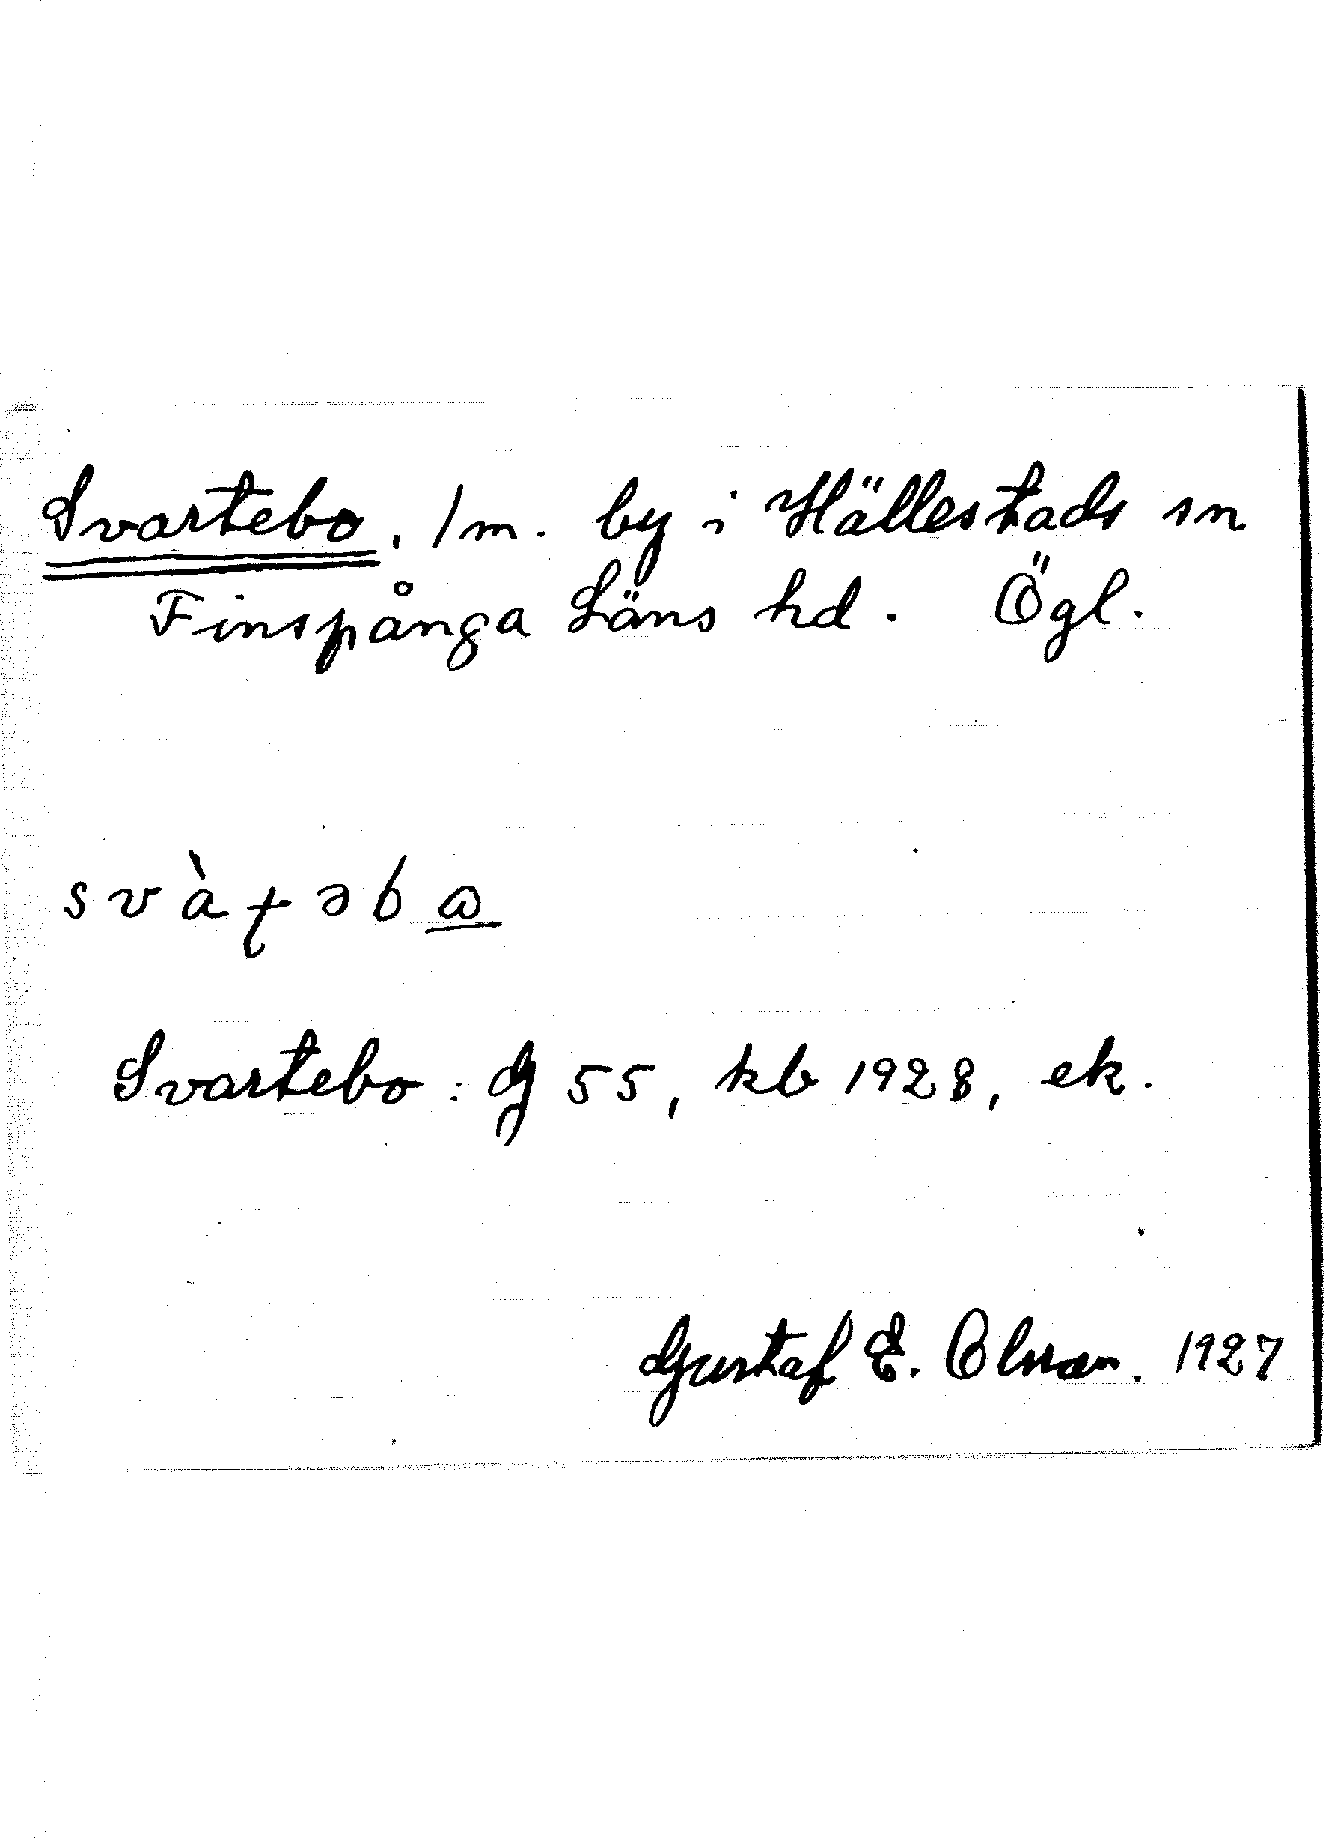 Svartebo, 1 m. by i Hällestads sn
Finspånga Läns hd. Ögl.
svàʈəbɷ
Svartebo: G 55, kb 1928, ek.
Gustaf E. Olsson. 1927